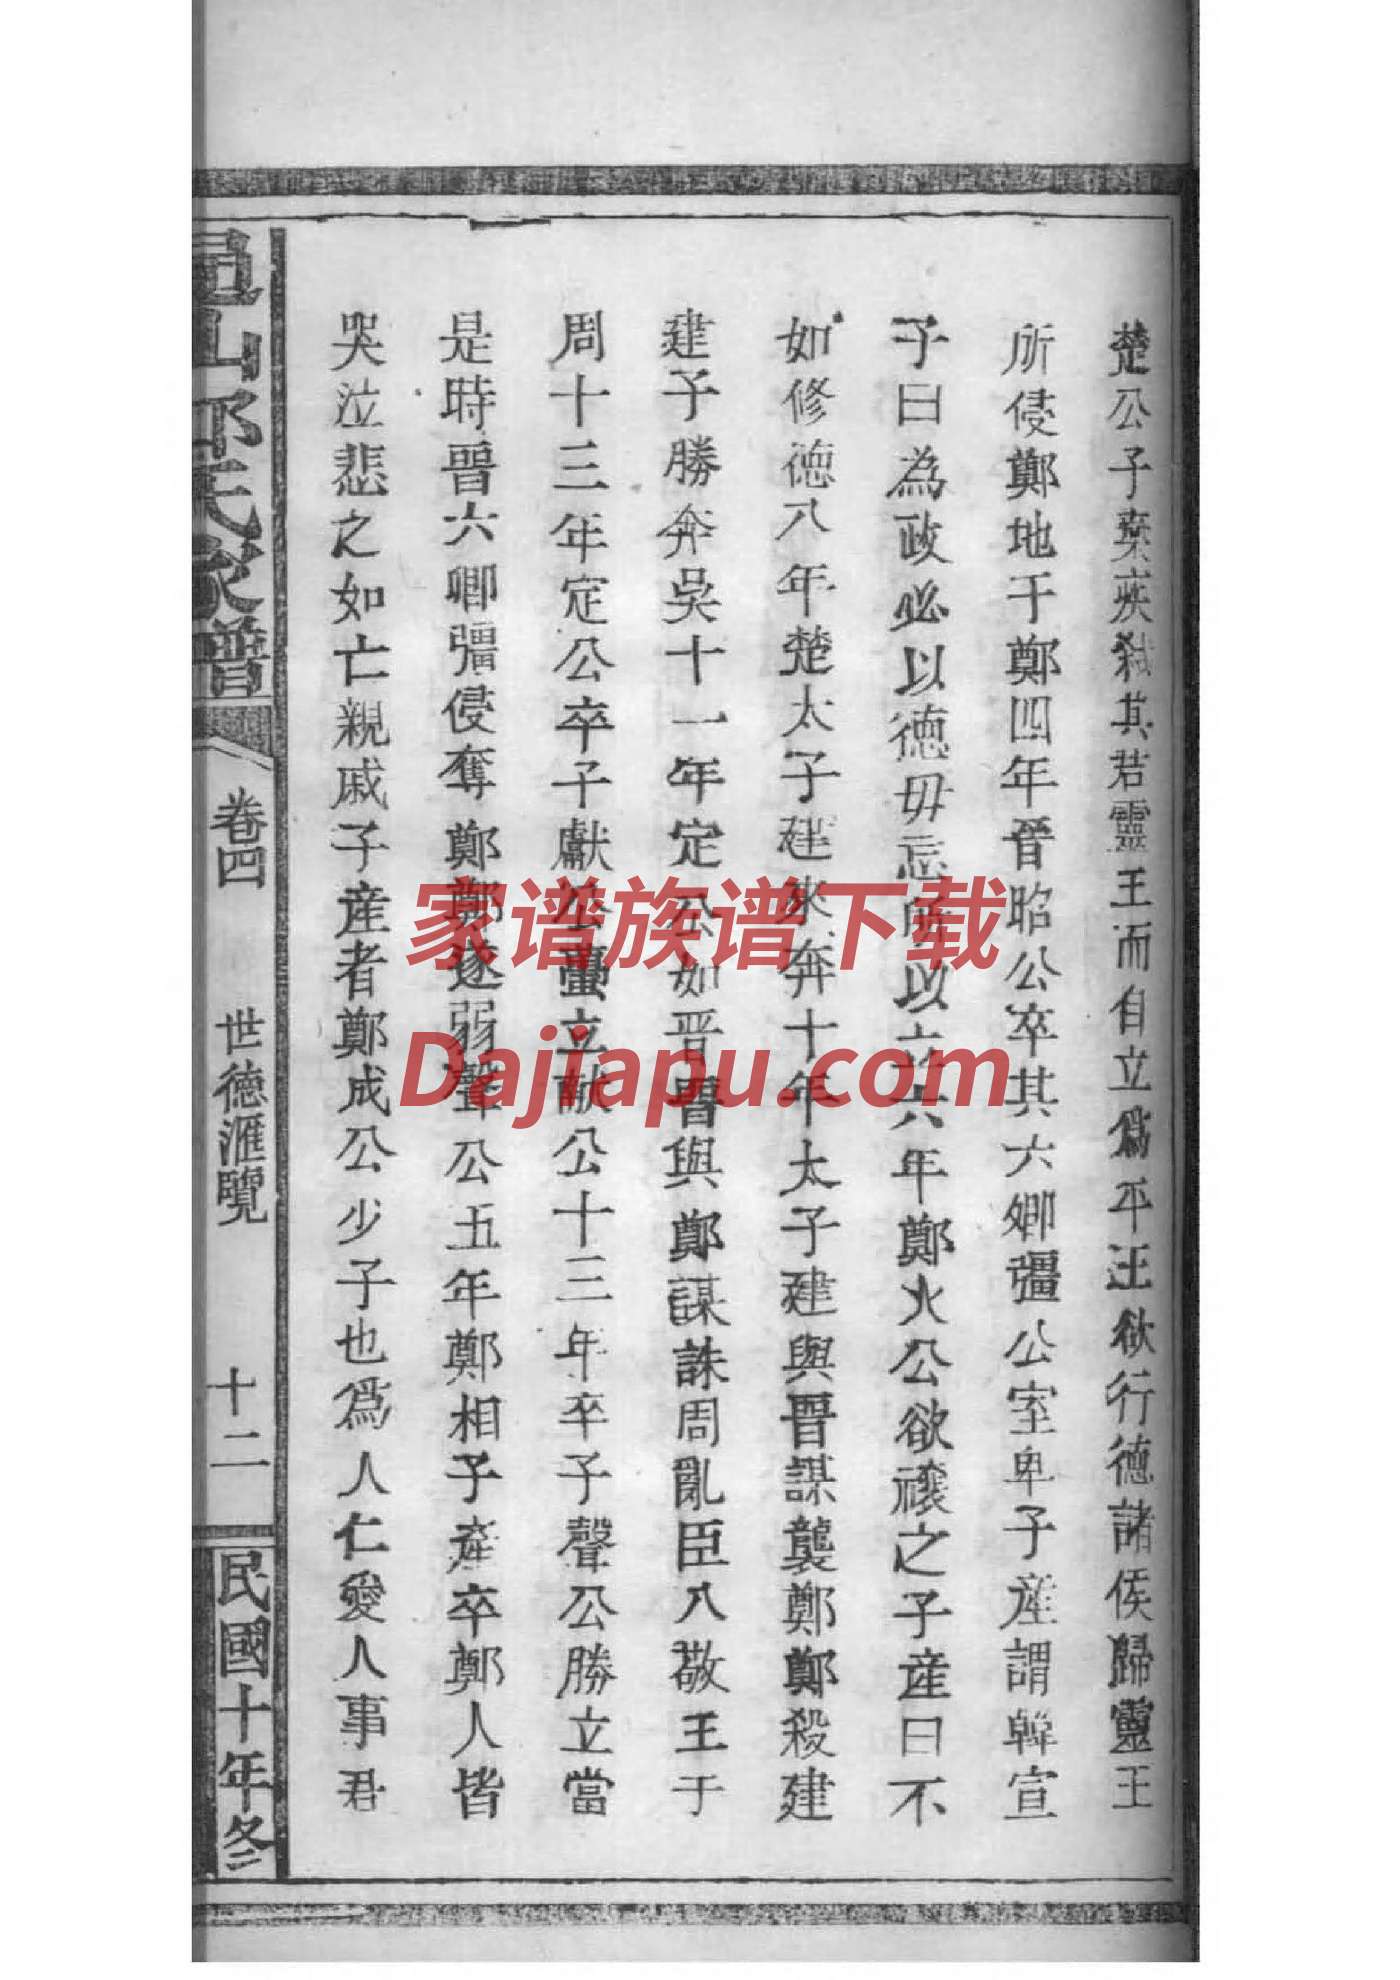 楚公子棄疾弒其君靈王而自立爲平王欲行德諸侯歸靈王
所侵鄭地于鄭四年晉昭公卒其六卿彊公室卑子産謂韓宣
子曰為政必以德毋忘所以立六年鄭火公欲禳之子産曰不
如修德八年楚太子建來奔十年太子建與晉謀襲鄭鄭殺建
建子勝奔吳十一年定公如晋晉與鄭謀誅周亂臣入敬王于
周十三年定公卒子獻公蠆立献公十三年卒子聲公勝立當
是時晉六卿彊侵奪鄭鄭遂弱聲公五年鄭相子産卒鄭人皆
哭泣悲之如亡親戚子産者鄭成公少子也爲人仁愛人事君
山 氏家譜
卷四
世德滙覽
十二
民國十年修
家谱族谱下载
Dajiapu.com